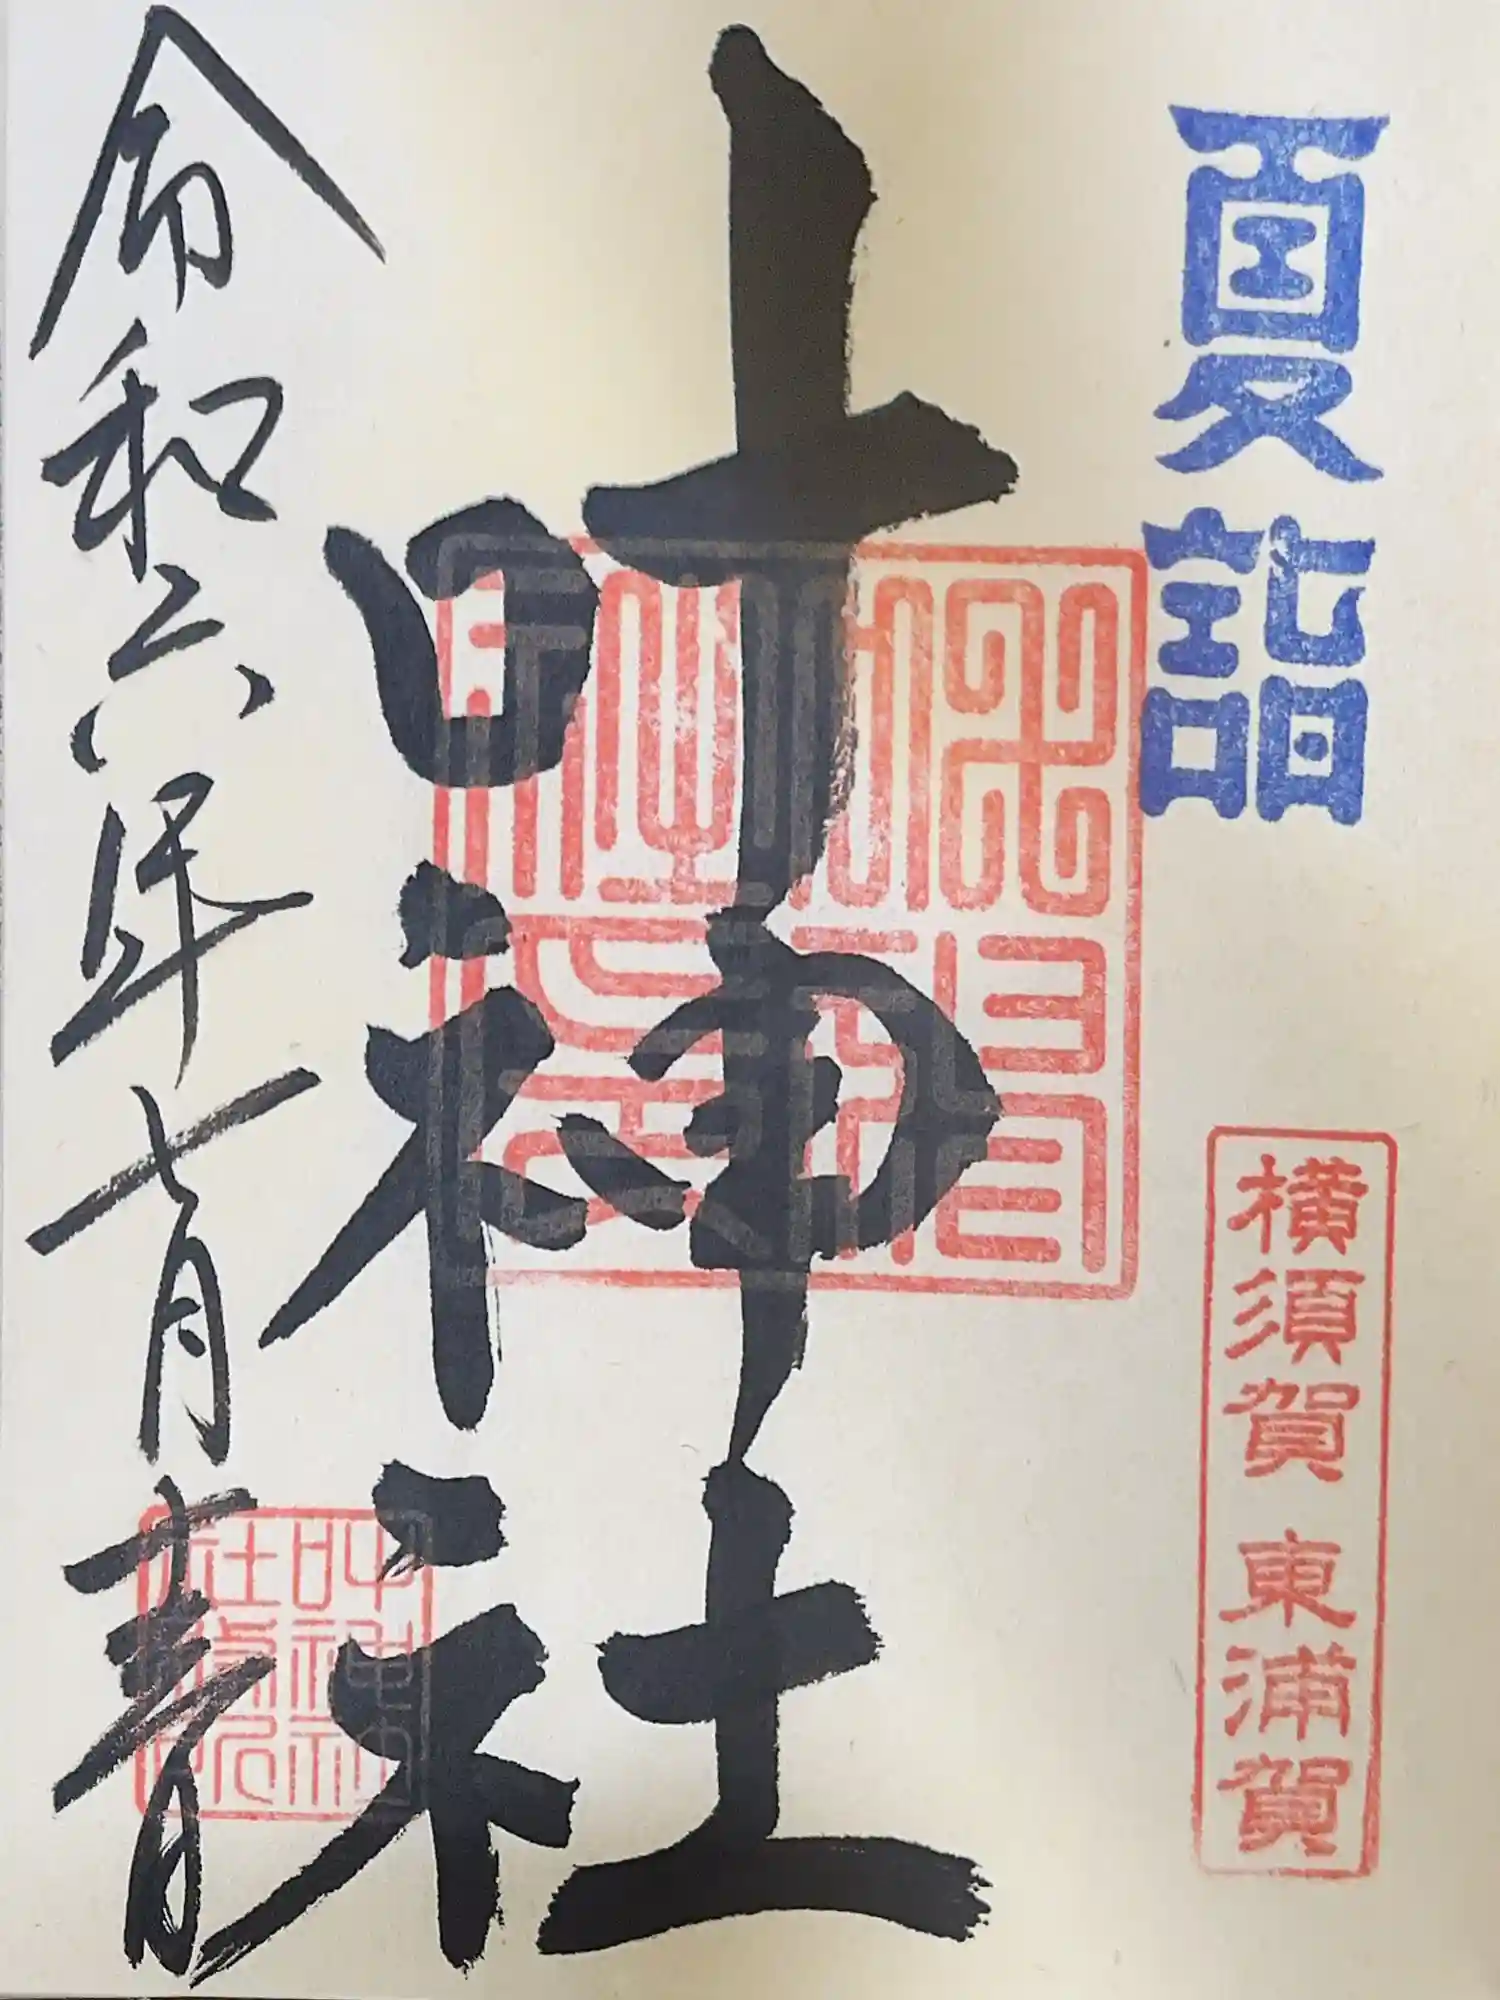 夏詣
横須賀 東浦賀
叶神社
叶神社
社務所
令和六年七月吉日